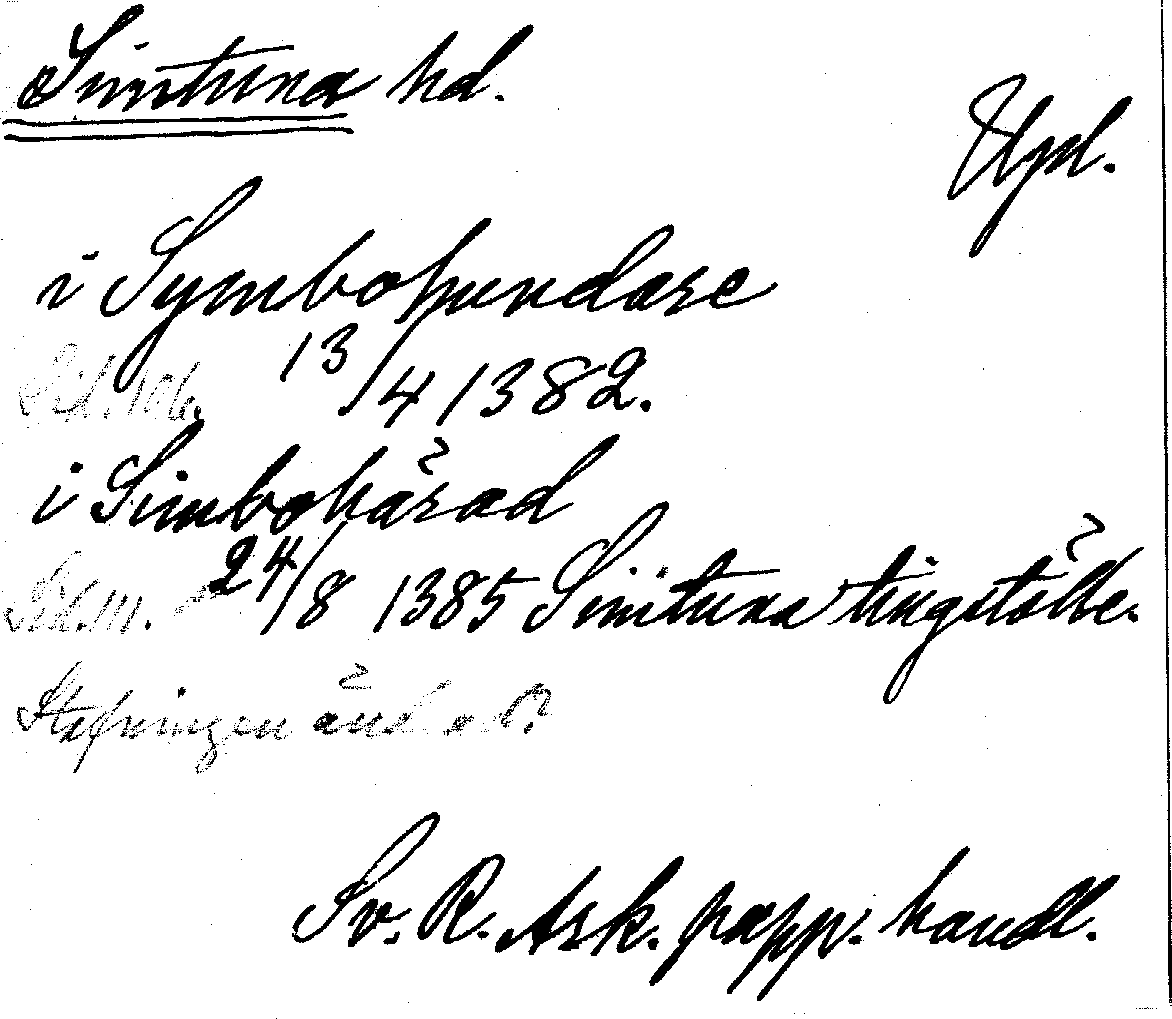 Simtuna hd.
Upl.
i Symbohundare
Sid. 106. 13/4 1382.
i Simbohärad
Sid. 111. 24/8 1385 Simtuna tingställe.
Stafningen
Sv. R. Ark. papp. handl.